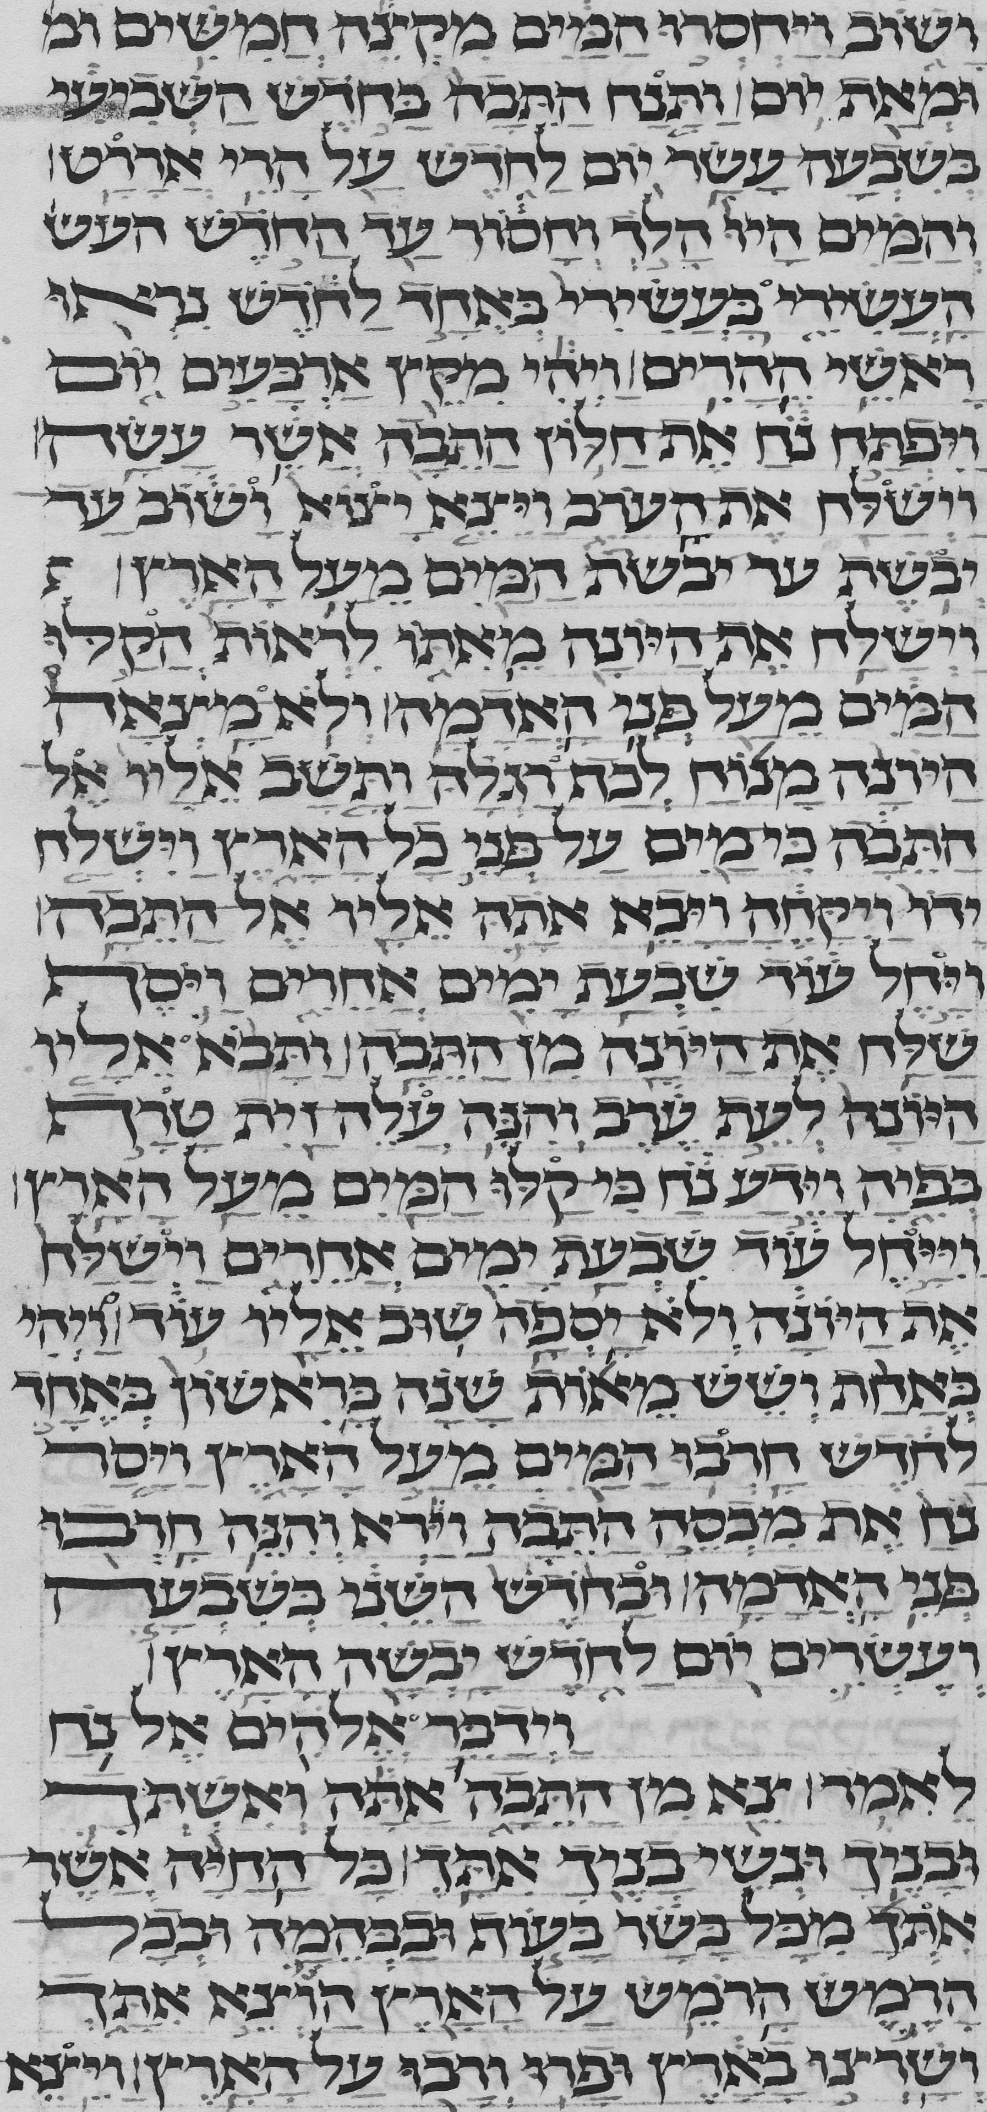 ושוב ויחסרו המים מקצה חמשים ומ
ומאת יום ותנח התבה בחדש השביעי
בשבעה עשר יום לחדש על הרי אררט
והמים היו הלך וחסור עד החדש העש
העשירי בעשירי באחד לחדש נראו
ראשי ההרים ויהי מקץ ארבעים יום
ויפתח נח את חלון התבה אשר עשה
וישלח את הערב ויצא יצוא ושוב עד
יבשת עד יבשת המים מעל הארץ
וישלח את היונה מאתו לראות הקלו
המים מעל פני האדמה ולא מצאה
היונה מנוח לכף רגלה ותשב אליו אל
התבה כי מים על פני כל הארץ וישלח
ידו ויקחה ויבא אתה אליו אל התבה
ויחל עוד שבעת ימים אחרים ויסף
שלח את היונה מן התבה ותבא אליו
היונה לעת ערב והנה עלה זית טרף
בפיה וידע נח כי קלו המים מעל הארץ
וייחל עוד שבעת ימים אחרים וישלח
את היונה ולא יספה שוב אליו עוד ויהי
באחת ושש מאות שנה בראשון באחד
לחדש חרבו המים מעל הארץ ויסר
נח את מכסה התבה וירא והנה חרבו
פני האדמה ובחדש השני בשבעה
ועשרים יום לחדש יבשה הארץ
וידבר אלהים אל נח
לאמר צא מן התבה אתה ואשתך
ובניך ונשי בניך אתך כל החיה אשר
אתך מכל בשר בעוף ובבהמה ובכל
הרמש הרמש על הארץ הוצא אתך
ושרצו בארץ ופרו ורבו על הארץ ויצא